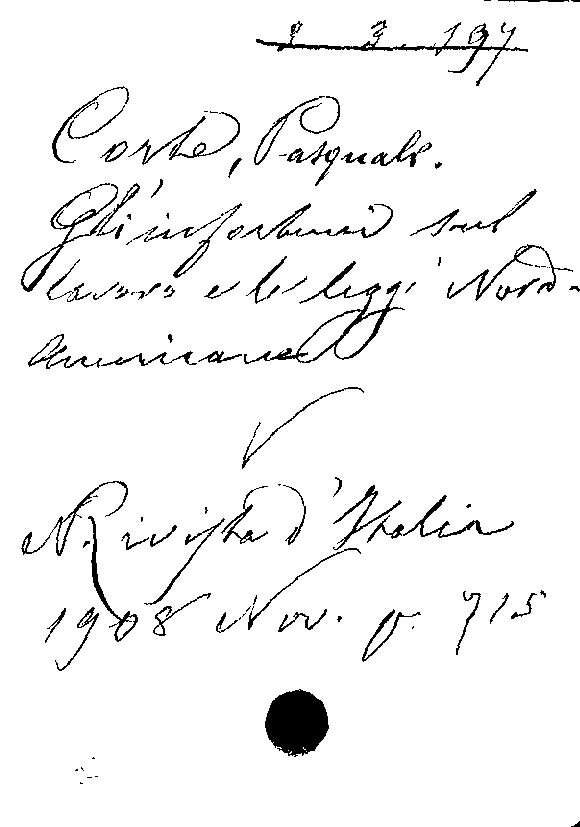 3. 197
Corte, Pasquale.
Gli infortuni sul
lavoro e le leggi Nord-
Americane
Rivista d'Italia
1908 Nov. p. 715